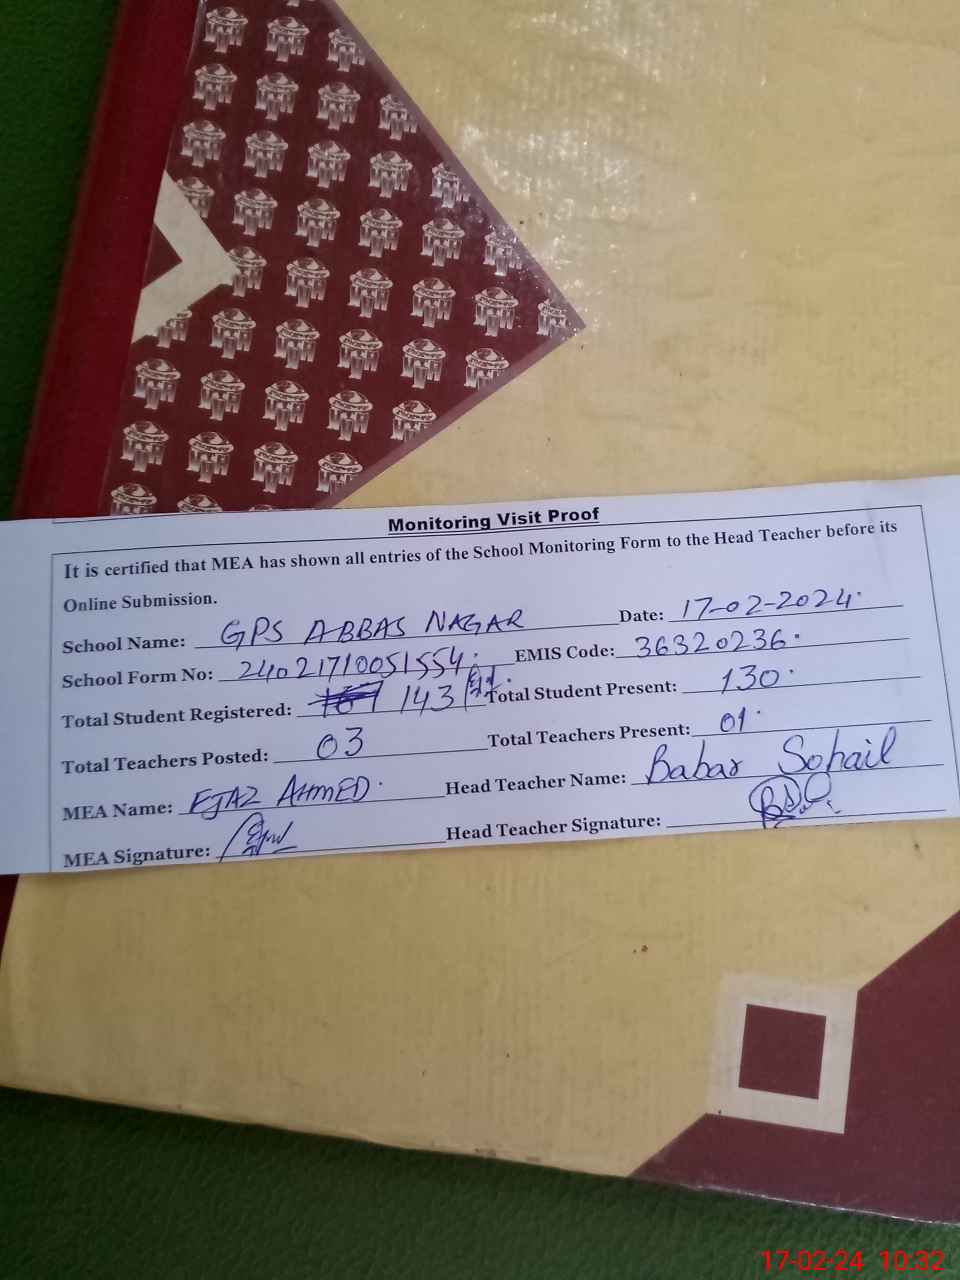 Monitoring Visit Proof
It is certified that MEA has shown all entries of the School Monitoring Form to the Head Teacher before its
Online Submission.
School Name: GPS ABBAS NAGAR Date: 17-02-2024
School Form No: 24021710051554 EMIS Code: 36320236
Total Student Registered: 143 Total Student Present: 130
Total Teachers Posted: 03 Total Teachers Present: 01
MEA Name: EJAZ AHMED Head Teacher Name: Babar Sohail
MEA Signature: Head Teacher Signature:
17-02-24 10:32